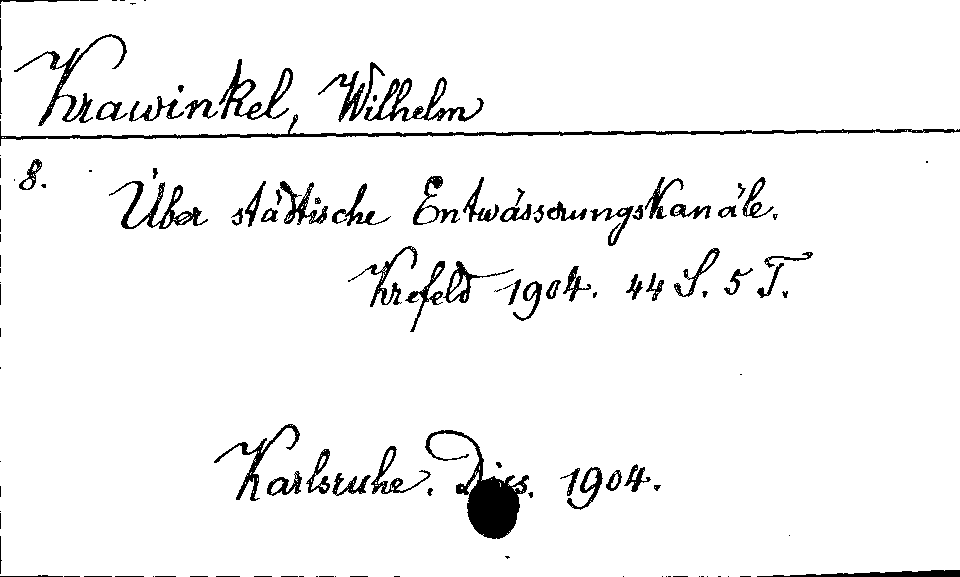 Krawinkel, Wilhelm
8. Über städtische Entwässerungskanäle.
Krefeld 1904. 44 S. 5 T.
Karlsruhe. Diss. 1904.